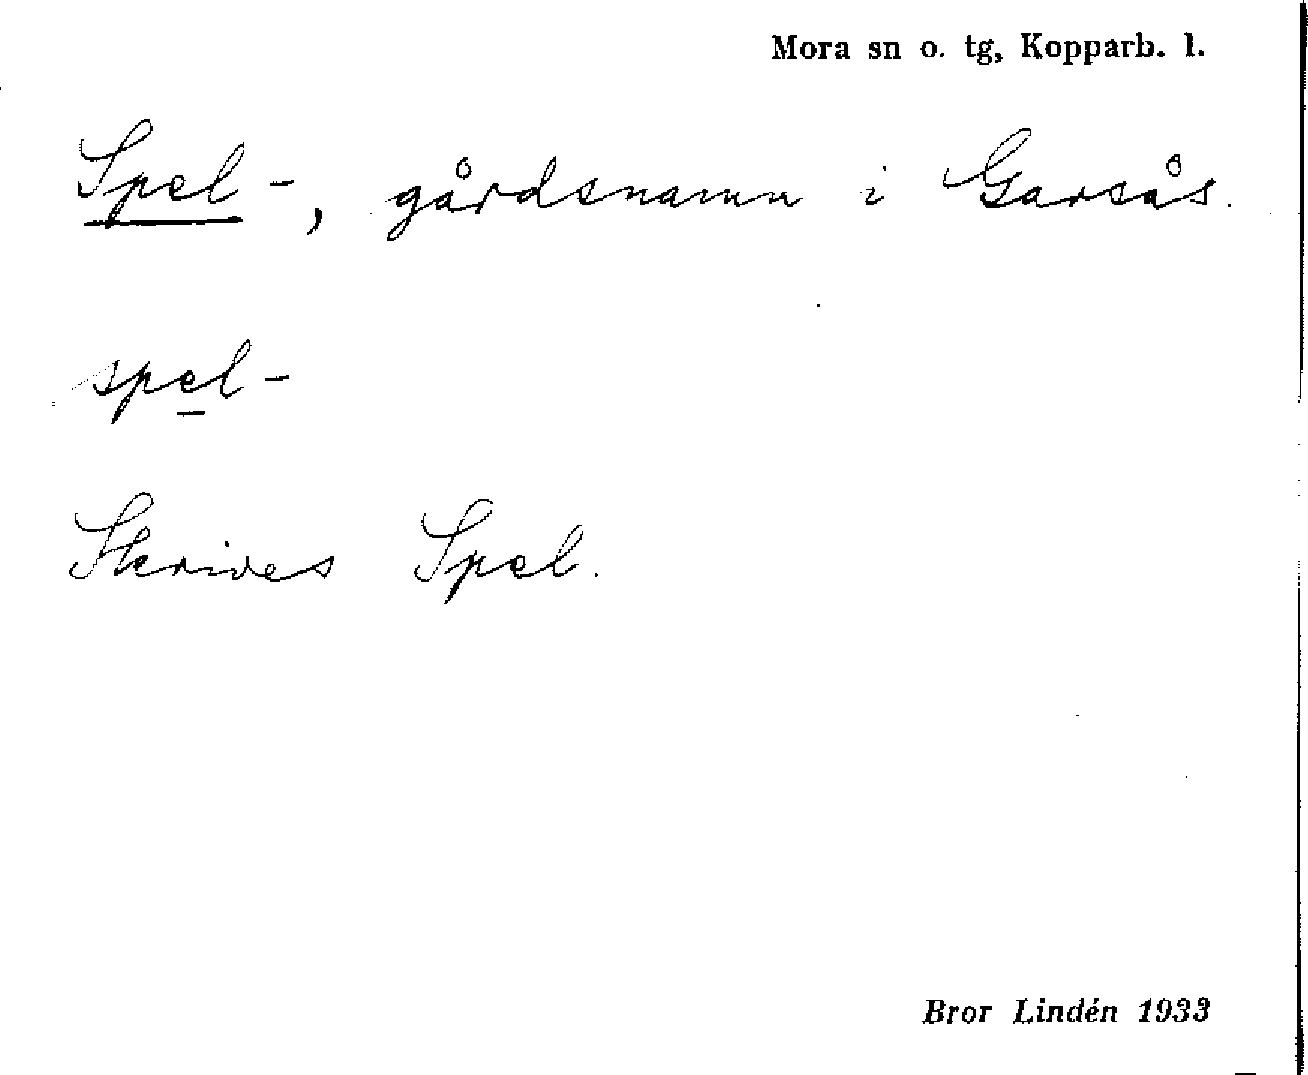 Mora sn o. tg, Kopparb. l.
Spel-, gårdsnamn i Garsås.
spel-
Skrives Spel.
Bror Lindén 1933